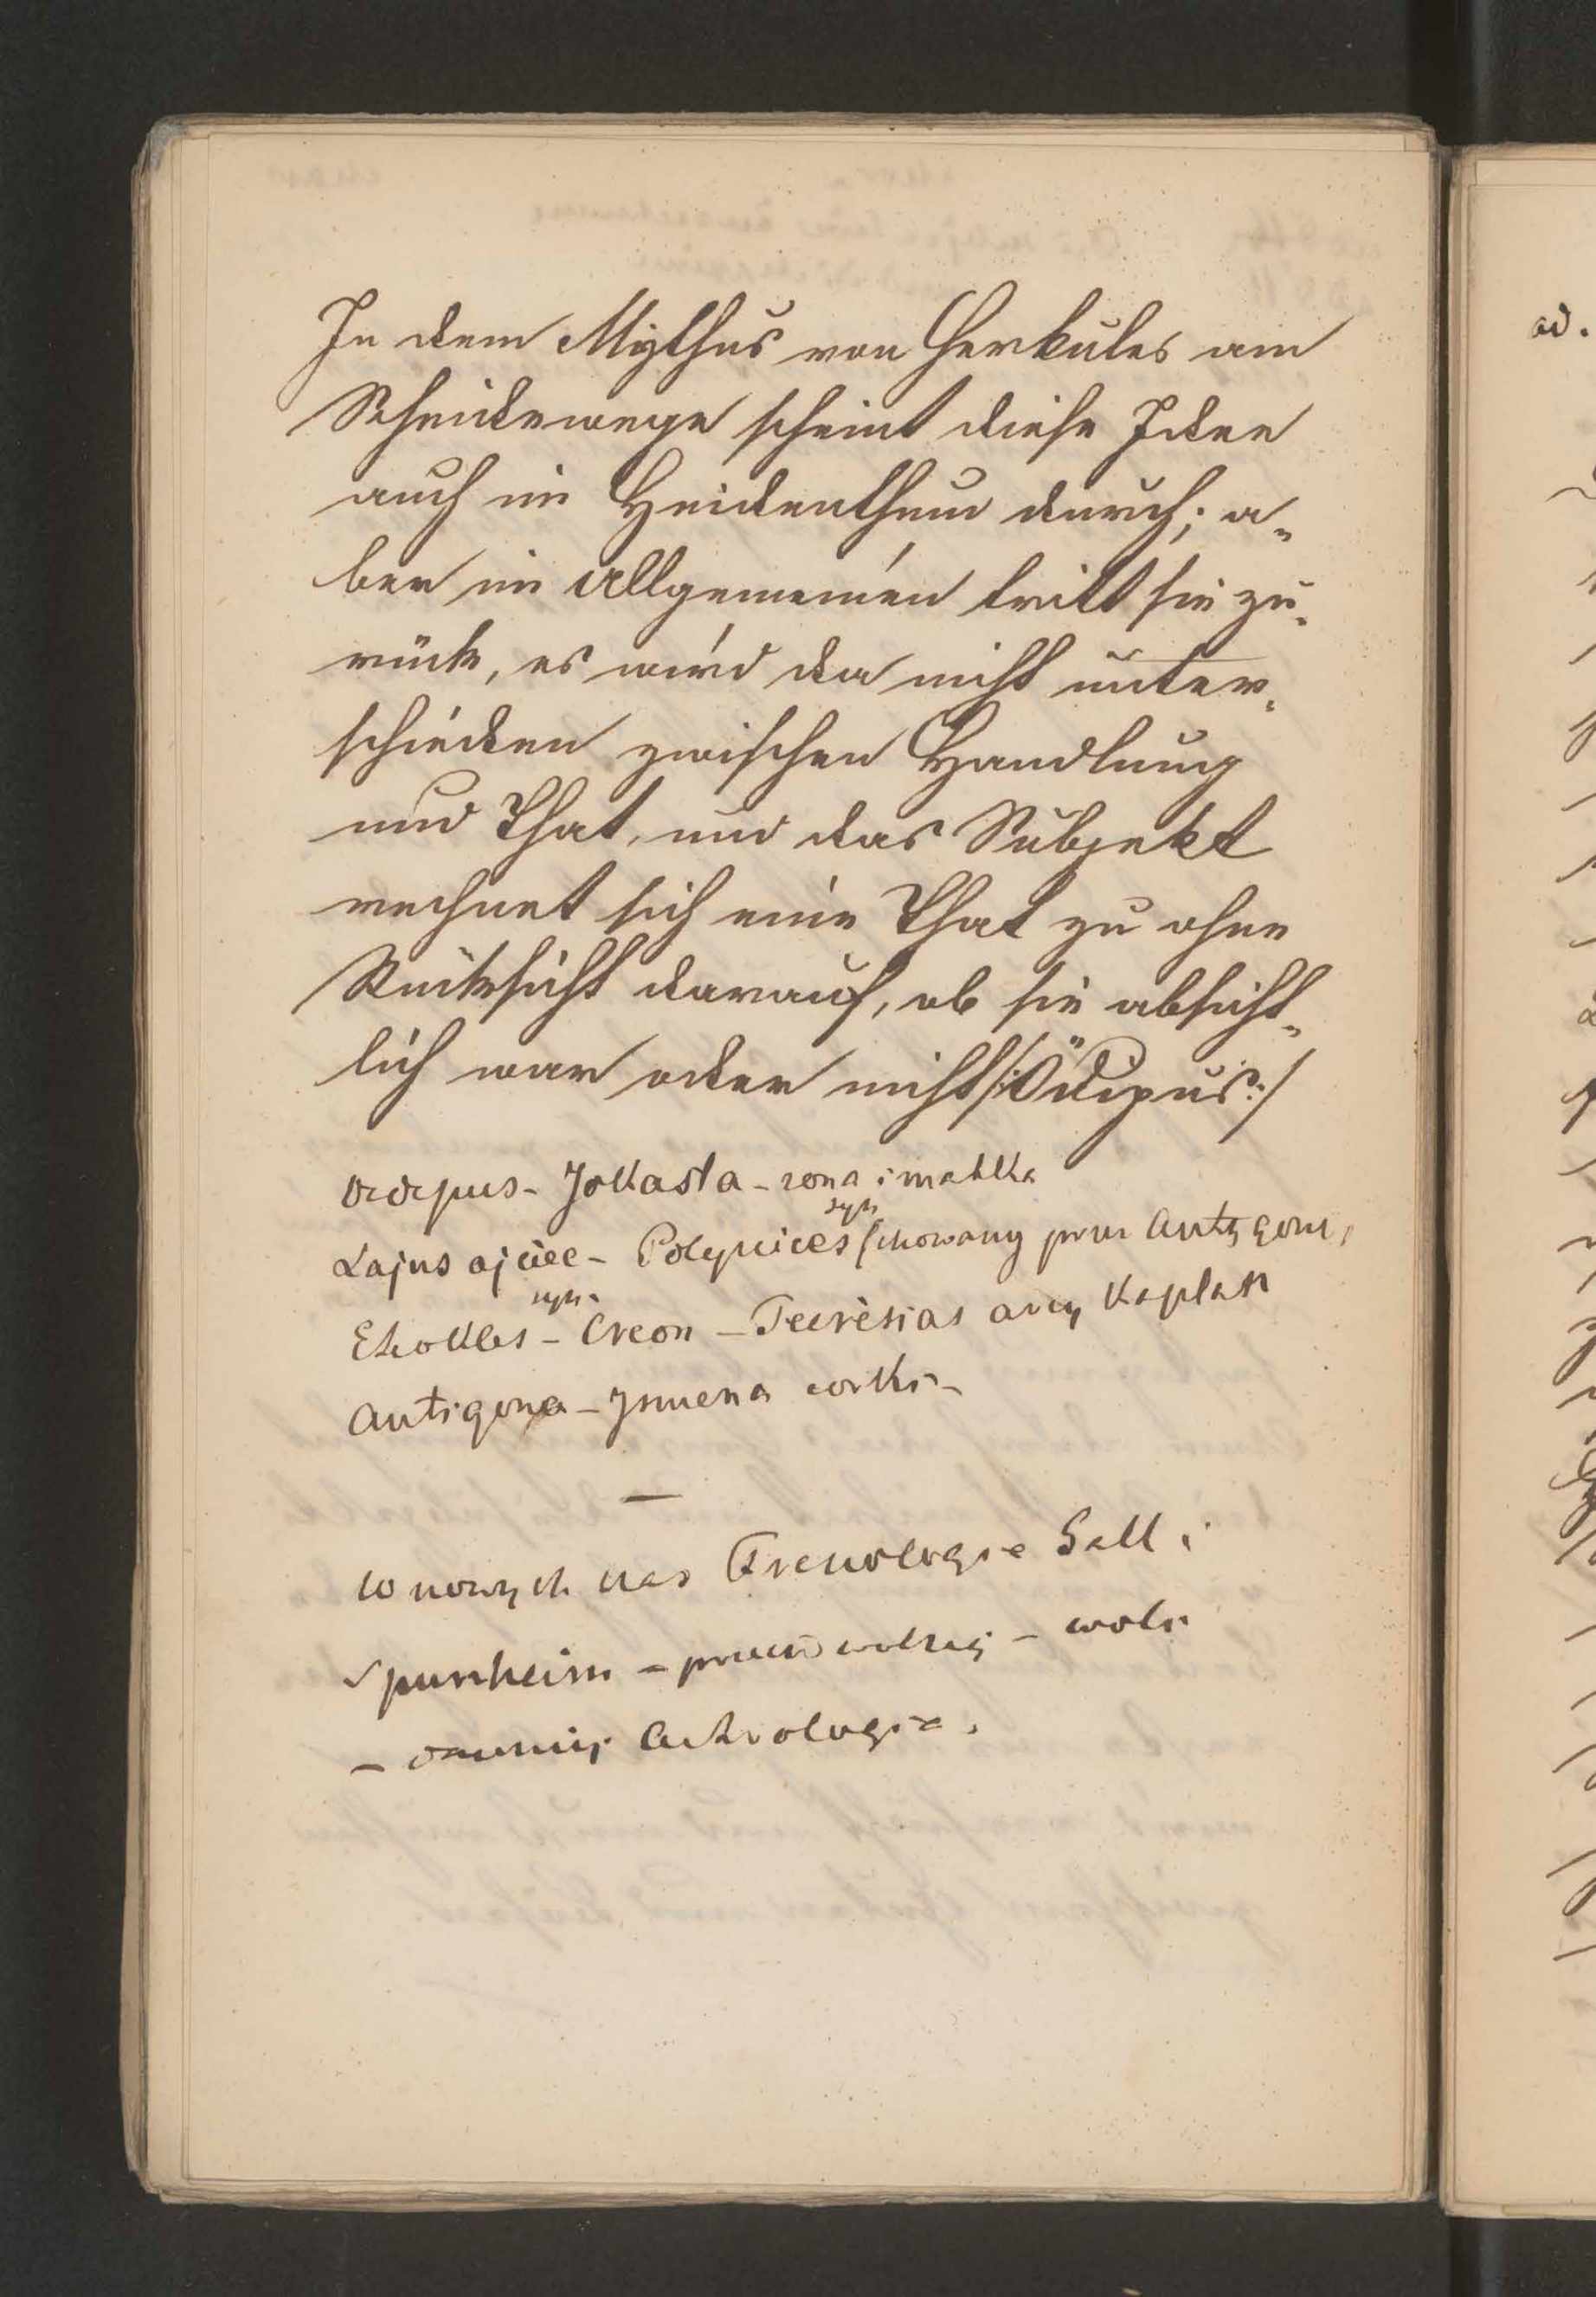 In dem Mythus von Herkules am
Scheidewege scheint diese Idee
auch im Heidenthum durch; a-
ber im Allgemeinen tritt sie zu-
rück, es wird da nicht unter-
schieden zwischen Handlung
und That, und das Subjekt
rechnet sich eine That zu ohne
Rücksicht darauf, ob sie absicht-
lich war oder nicht /:Ödipus:/
Oedipus - Jokasta - zona i matka
syn
Lajus ojciec - Polynices (chowany przez Antygonę,
syn
Eteokles - Creon - Teiresias arcykapłan
Antigona - Ismena córki -
—
W nowych czas Frenologie Gall i
Spurzheim - przeciw wolnej - woli
- dawniej Astrologie.
ad.